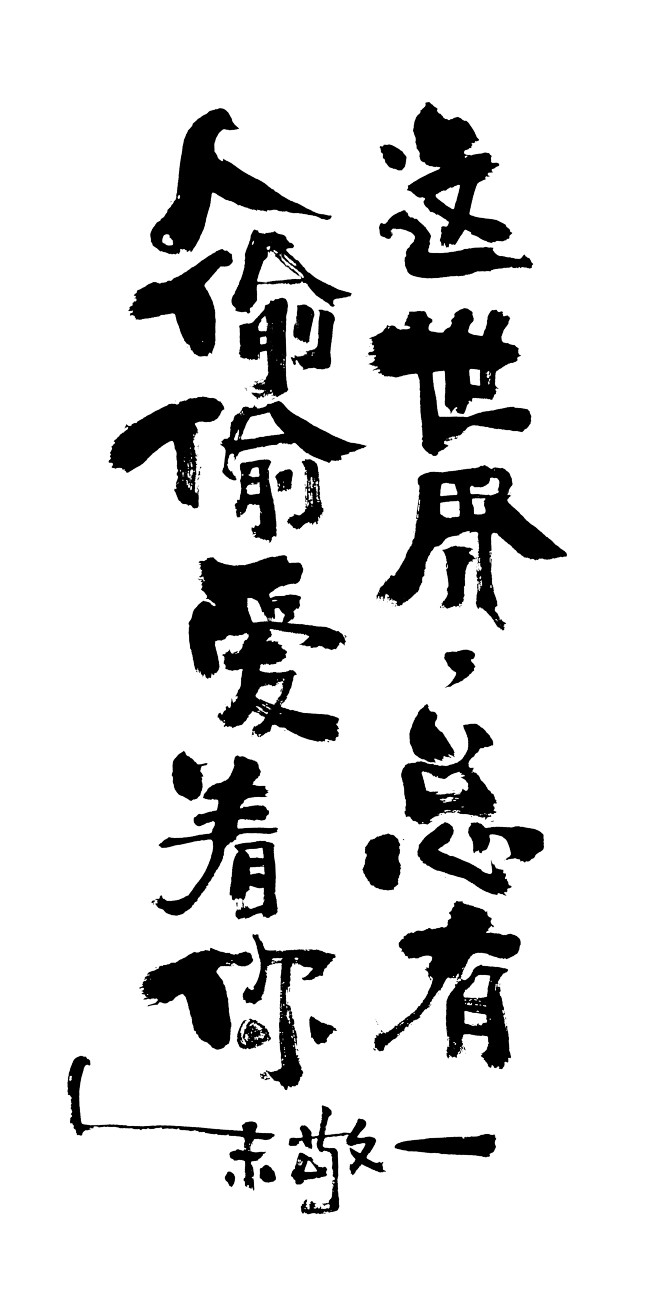 这世界，总有
人偷偷爱着你
朱敬一